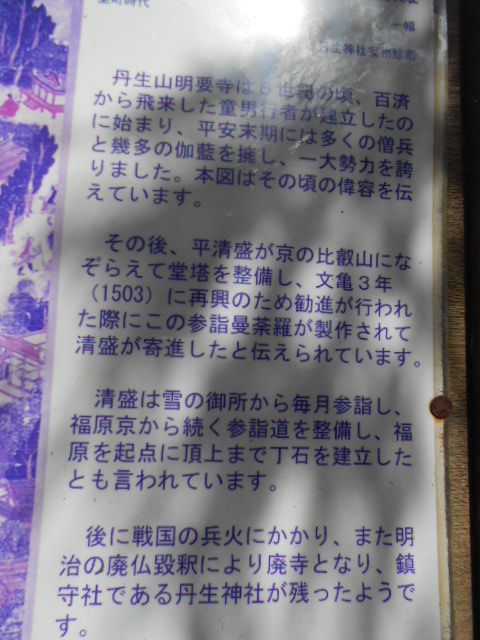 室町時代
一幅
丹生神社宝物館蔵
丹生山明要寺は6世紀の頃、百済
から飛来した童男行者が建立したの
に始まり、平安末期には多くの僧兵
と幾多の伽藍を擁し、一大勢力を誇
りました。本図はその頃の偉容を伝
えています。
その後、平清盛が京の比叡山にな
ぞらえて堂塔を整備し、文亀3年
(1503)に再興のため勧進が行われ
た際にこの参詣曼荼羅が製作されて
清盛が寄進したと伝えられています。
清盛は雪の御所から毎月参詣し、
福原京から続く参詣道を整備し、福
原を起点に頂上まで丁石を建立した
とも言われています。
後に戦国の兵火にかかり、また明
治の廃仏毀釈により廃寺となり、鎮
守社である丹生神社が残ったようで
す。